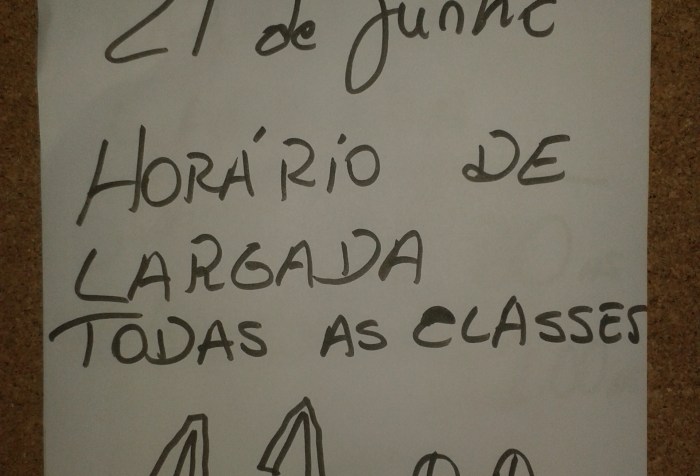 21 de Junho
HORÁRIO DE
LARGADA
TODAS AS CLASSES